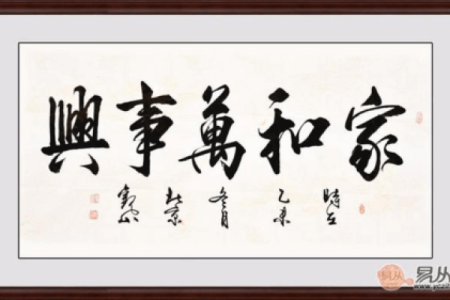 家和萬事興
時在乙未冬月北京
易从